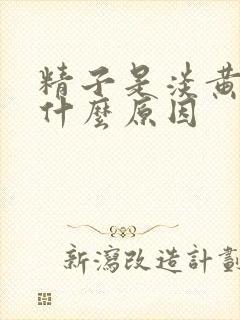 精子是淡黃
什麼原因
新瀉改造計劃